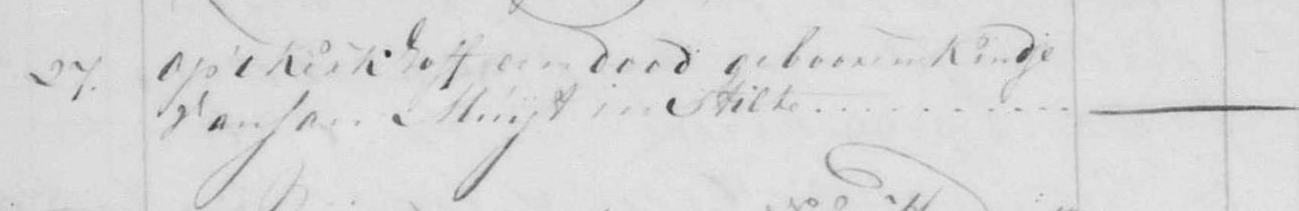 27. op 't kerkhoff een dood gebooren kindje
van Jan Muijt in Stilte